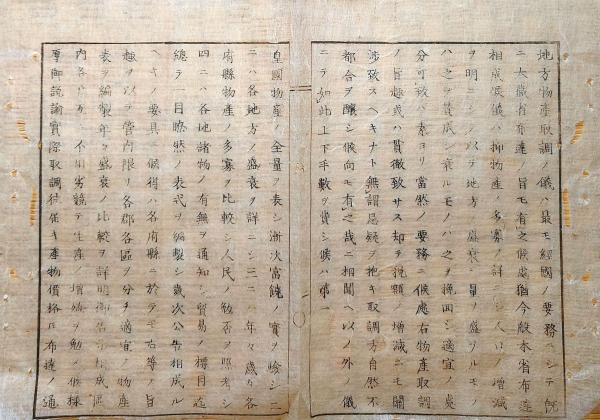 地方物産取調ノ儀ハ最モ經國ノ要務ニシテ既
ニ大藏省布達ノ旨モ有之候處猶今般本省布達
相成候儀ハ抑物産ノ多寡ヲ詳ニシ人口ノ增減
ヲ明ニシ以テ地方ノ盛衰ヲ量リ盛ルモノ
ハ之ヲ贊成シ衰ルモノハ之ヲ挽回シ適宜ノ處
分可致ハ素ヨリ當然ノ要務ニ候處右物産取調
ノ旨趣或ハ貫徹致サス却テ税額ノ增減ニモ關
涉致スヘキナト無謂忌疑ヲ抱キ取調方自然不
都合ヲ釀シ候向モ有之哉ニ相聞ヘ以ノ外ノ儀
ニテ如此上下手數ヲ費シ候ハ第一
皇國物産ノ全量ヲ表シ漸次富饒ノ實ヲ驗シ二
ニハ各地方ノ盛衰ヲ詳ニシ三ニハ年々歲々各
府縣物産ノ多寡ヲ比較シ人民ノ勉否ヲ照考シ
四ニハ各地諸物ノ有無ヲ通知シ貿易ノ標目迄
總テ一目瞭然ノ表式ヲ編製シ幾次公告相成ル
ヘキノ要具ニ候得ハ各府縣ニ於テモ右等ノ旨
趣ヲ以テ管内限リ各郡各區ヲ分チ適宜ノ物産
表ヲ編製年々盛衰ノ比較ヲ詳明
内各方 不用劣競テ生産ノ增殖ヲ勉メ候樣
厚御説諭實際取調 産物價格 布達ノ通